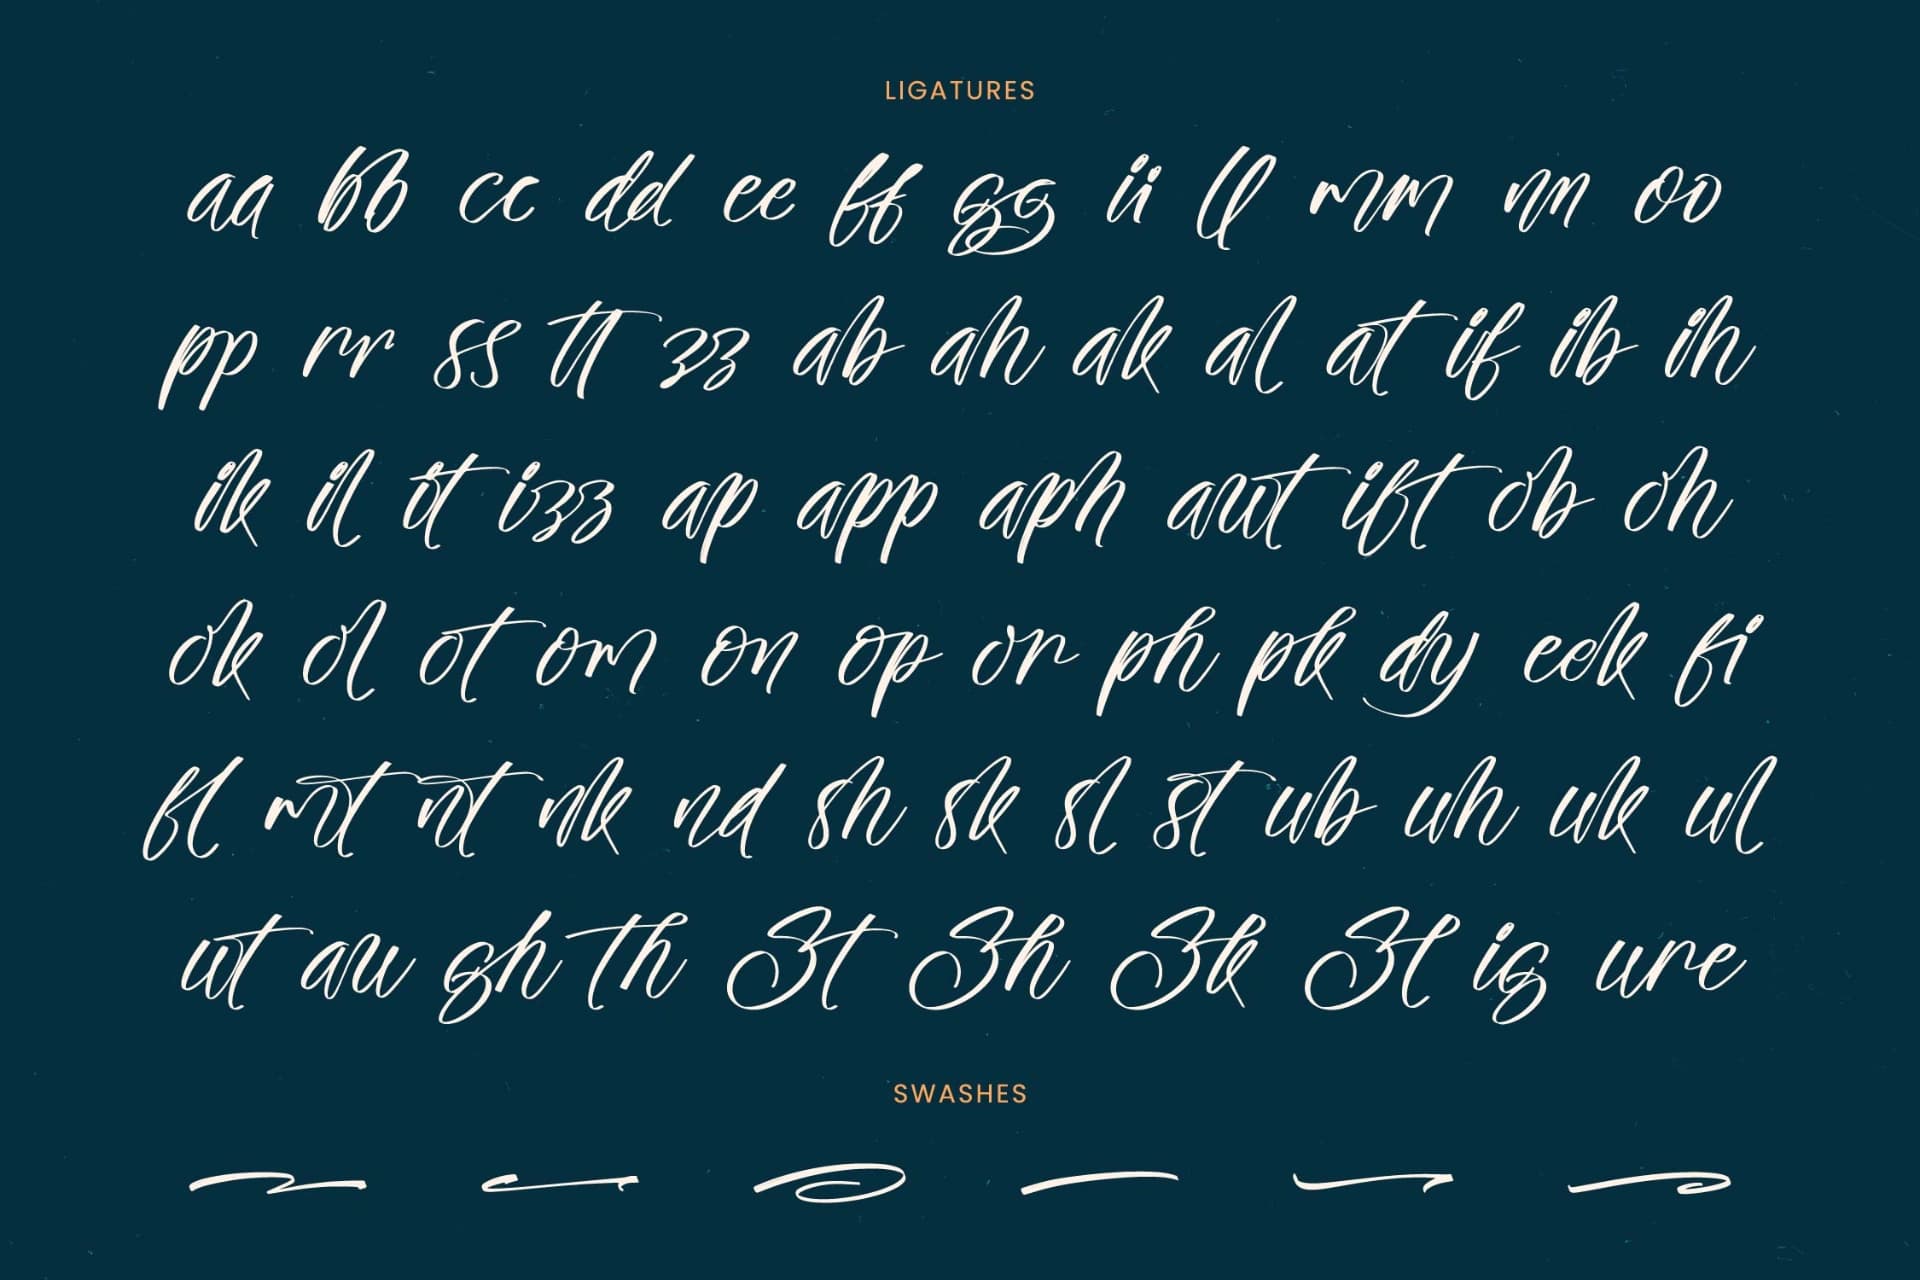 LIGATURES
aa bb cc dd ee ff gg ii ll mm nn oo
pp rr ss tt zz ab ah ak al at if ib ih
ik il it izz ap app aph aut ift ob oh
ok ol ot om on op or ph pk dy eek fi
fl mt nt nk nd sh sk sl st ub uh uk ul
ut au gh th Zt Zh Zk Zl ig ure
SWASHES